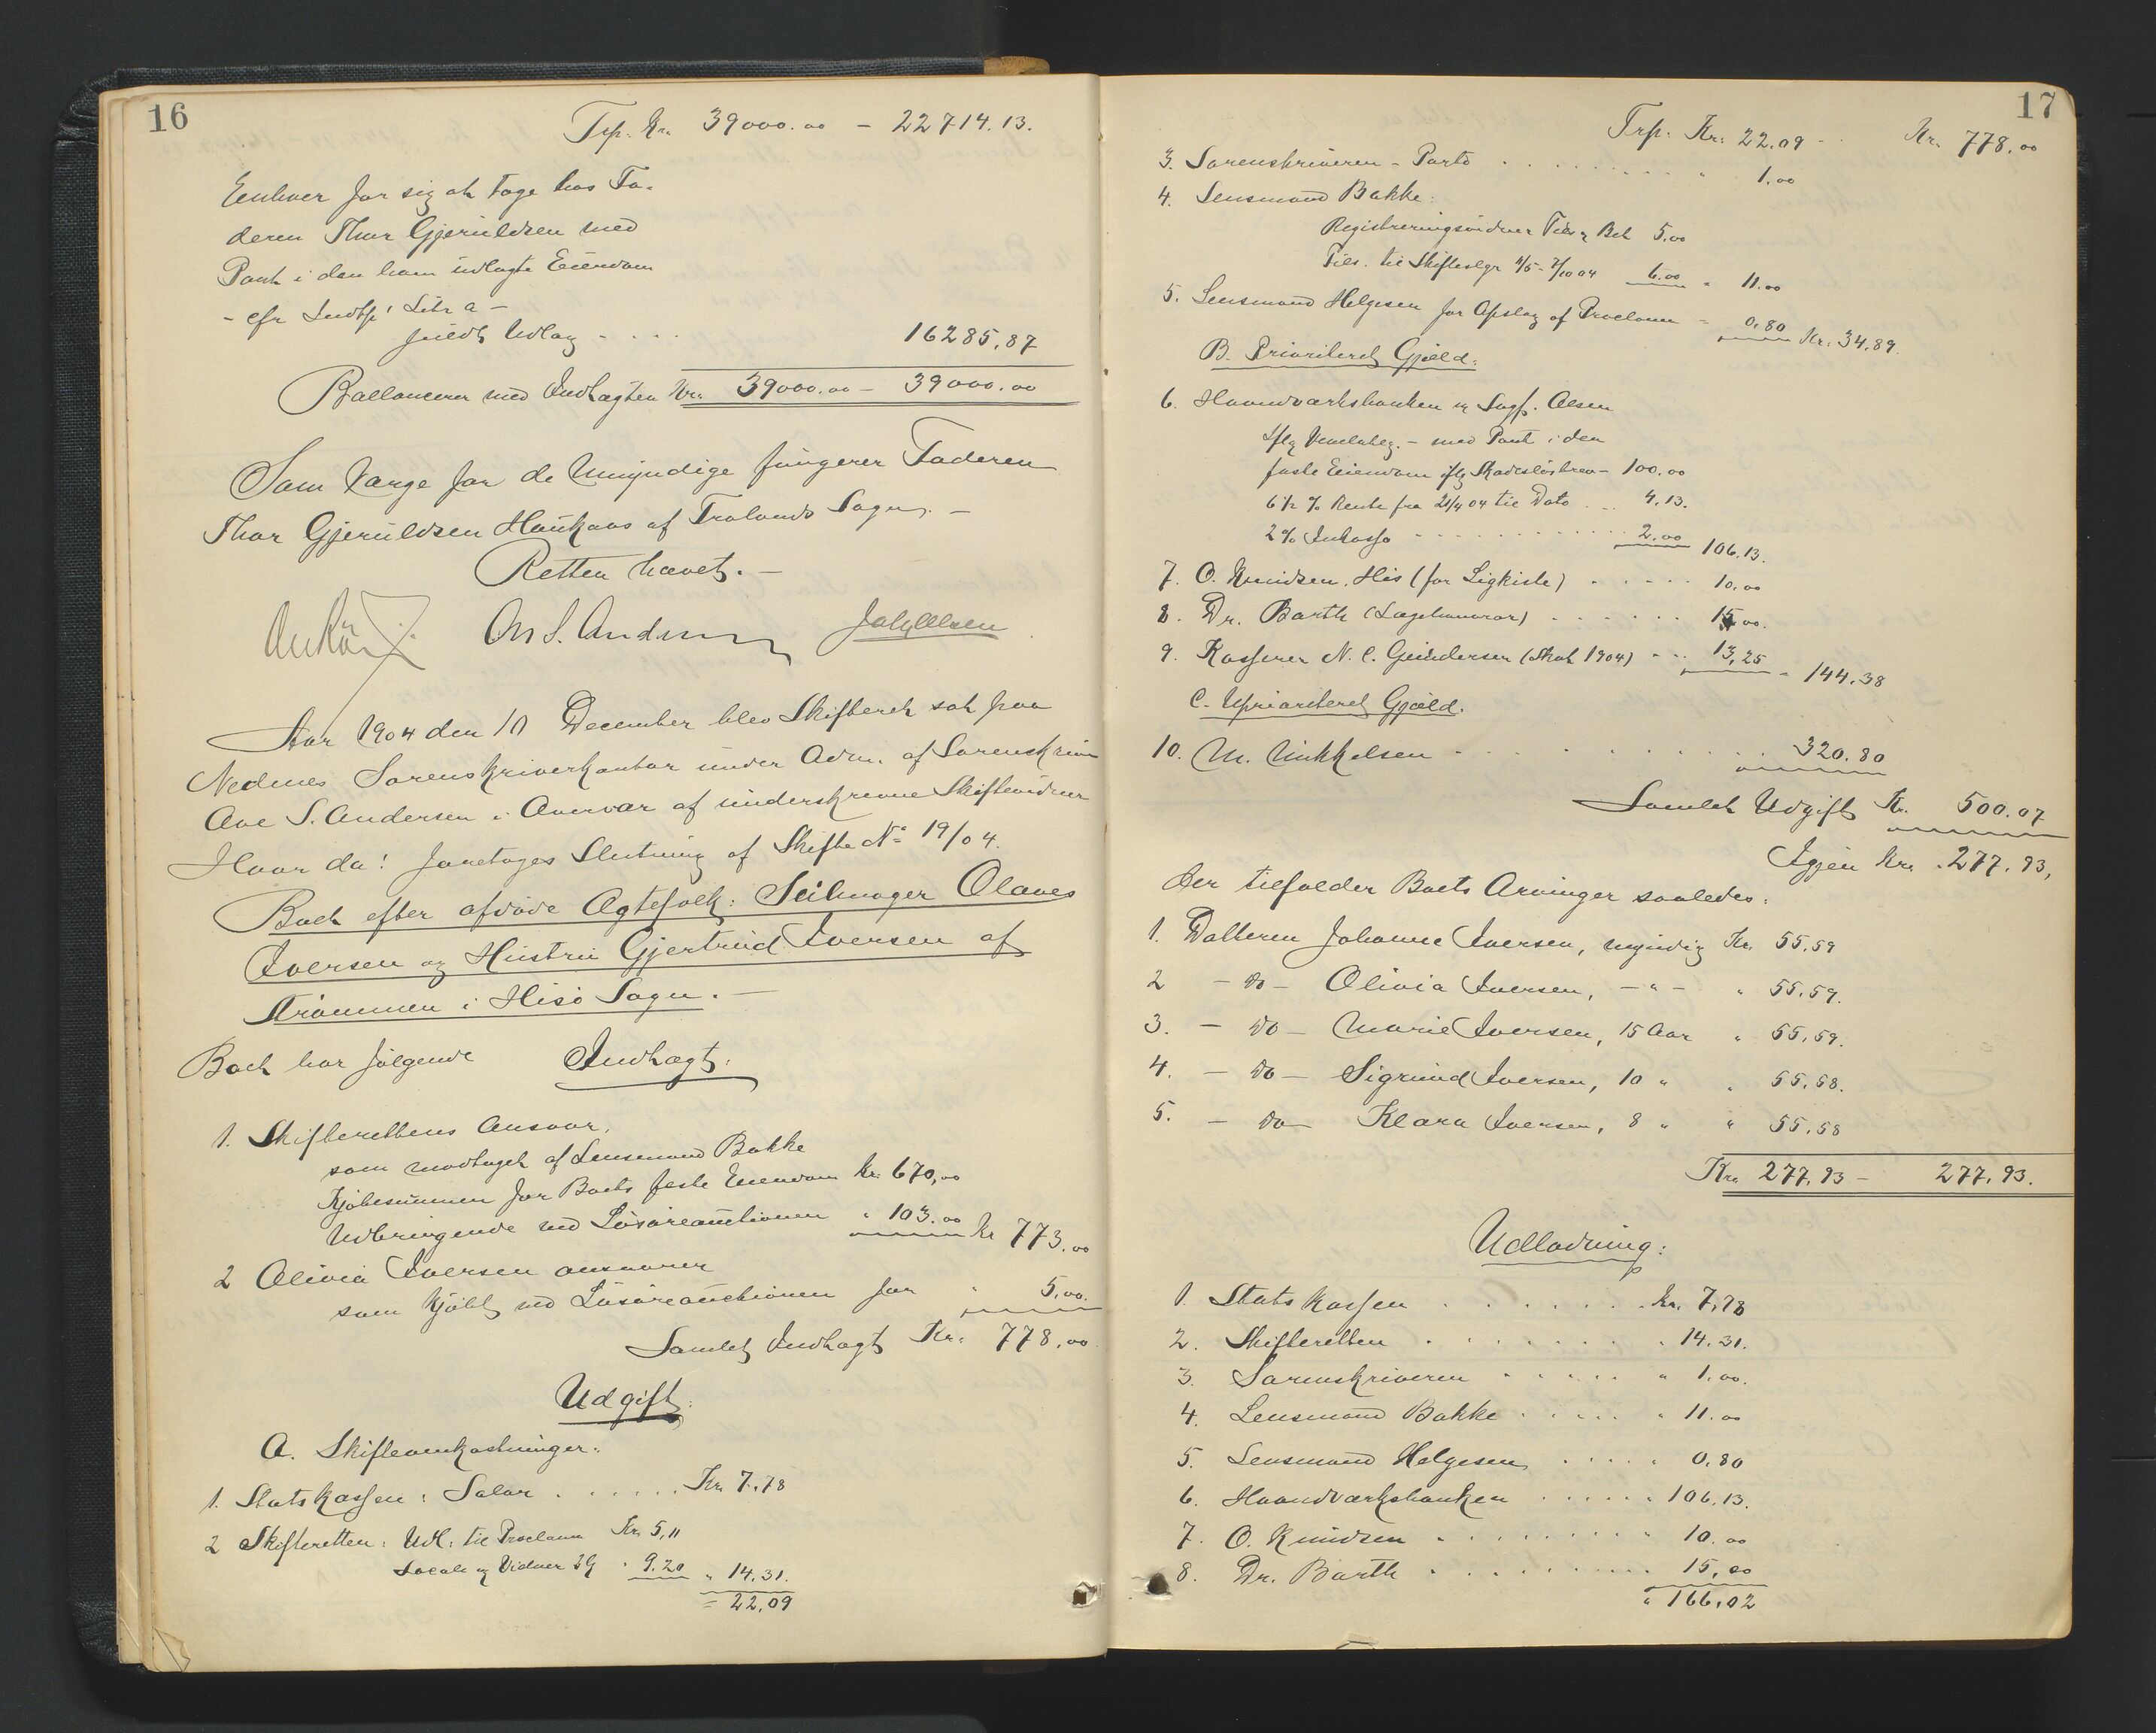 16
Trp. Kr. 39000.00 – 22714.13.
Eenhver for sig at tage hos Fa-
deren Thor Gjeruldsen med
Pant i den ham udlagte Eiendom
– cfr Indtp! Litr a –
Udlæg - - - - 16285,87
Ballancerer med Indtægten Kr. 39000.00 – 39000.00
Som Værge for de Umyndige fungerer Faderen
Thor Gjeruldsen Haukaas af Trolands Sogn. –
Retten hævet. –
O. S. Andersen
Aar 1904 den 10 December blev Skifteret sat paa
Nedenes Sorenskriverkontor under Adm. af Sorenskriver
Ove S. Andersen i Overvær af underskrevne Skiftevidner
Hvor da! foretoges Slutning af Skifte No 19/04.
Boet efter afdøde Ægtefolk: Seilmager Olaves
Iversen og Hustru Gjertrud Iversen af
Strømmen i Hisø Sogn. –
Boet har følgende Indtægt.
1. Skifterettens Ansvar,
som modtaget af Lensmand Bakke
Kjøbesummen for Boets faste Eiendom Kr. 670,00
Udbringende ved Løsøreauctionen " 103.00 Kr 773.00
2 Olivia Iversen ansvarer
som kjøbt ved Løsøreauctionen for " 5,00.
Samlet Indtægt Kr. 778,00
Udgift:
A. Skifteomkostninger:
1. Statskassen: Salær . . . . . . Kr. 7,78
2 Skifteretten: Udl: til Proclama Kr. 5,11
Locale og Vidner " 9.20 " 14.31.
= 22,09
17
Trp. Kr. 22.09 – Kr. 778.00
3. Sorenskriveren – Porto . . . . . . . . " 1.00
4. Lensmand Bakke:
Registreringsvidner 5.00
til 6.00 " 11.00
5. Lensmand Helgesen for Opslag af Proclama – 0,80 Kr. 34,89.
B. Prioriteret Gjæld:
6. Haandværksbanken v Sagf. Olsen
– med Pant i den
faste Eiendom iflg Skadesløsbrev – 100.00
6½ % Rente fra 21/4 04 til Dato . . . 4,13.
2% Inkasso - - - - - - - - - 2.00 106.13.
7. O. Knudsen, His (for Ligkiste) . . . . . . 10,00
8. Dr. Barth (Lægehonorar) . . . . . . . 15,00.
9. Kasserer N. C. Gundersen (Skat 1904) - . . 13,25 " 144,38
C. Uprioriteret Gjæld.
10. M. Mikkelsen . . . . . . . . . . . . 320.80
Samlet Udgift Kr. 500.07
Igjen Kr. 277.93,
der tilfalder Boets Arvinger saaledes:
1. Datteren Johanne Iversen, myndig Kr. 55,59
2 – do – Olivia Iversen, – " – " 55,59.
3. – do – Marie Iversen, 15 Aar " 55,59.
4. – do – Sigrund Iversen, 10 " " 55,58.
5. – do – Klara Iversen, 8 " " 55,58
Kr. 277,93 – 277,93.
Udlodning:
1. Statskassen . . . . . . . . Kr. 7,78
2. Skifteretten . . . . . . . . " 14.31.
3. Sorenskriveren . . . . . . " 1,00.
4. Lensmand Bakke . . . . . " 11.00
5. Lensmand Helgesen . . . . . " 0,80
6. Haandværksbanken . . . . . . " 106,13.
7. O. Knudsen . . . . . . . . . " 10.00
8. Dr. Barth . . . . . . . . . . 15,00
" 166,02